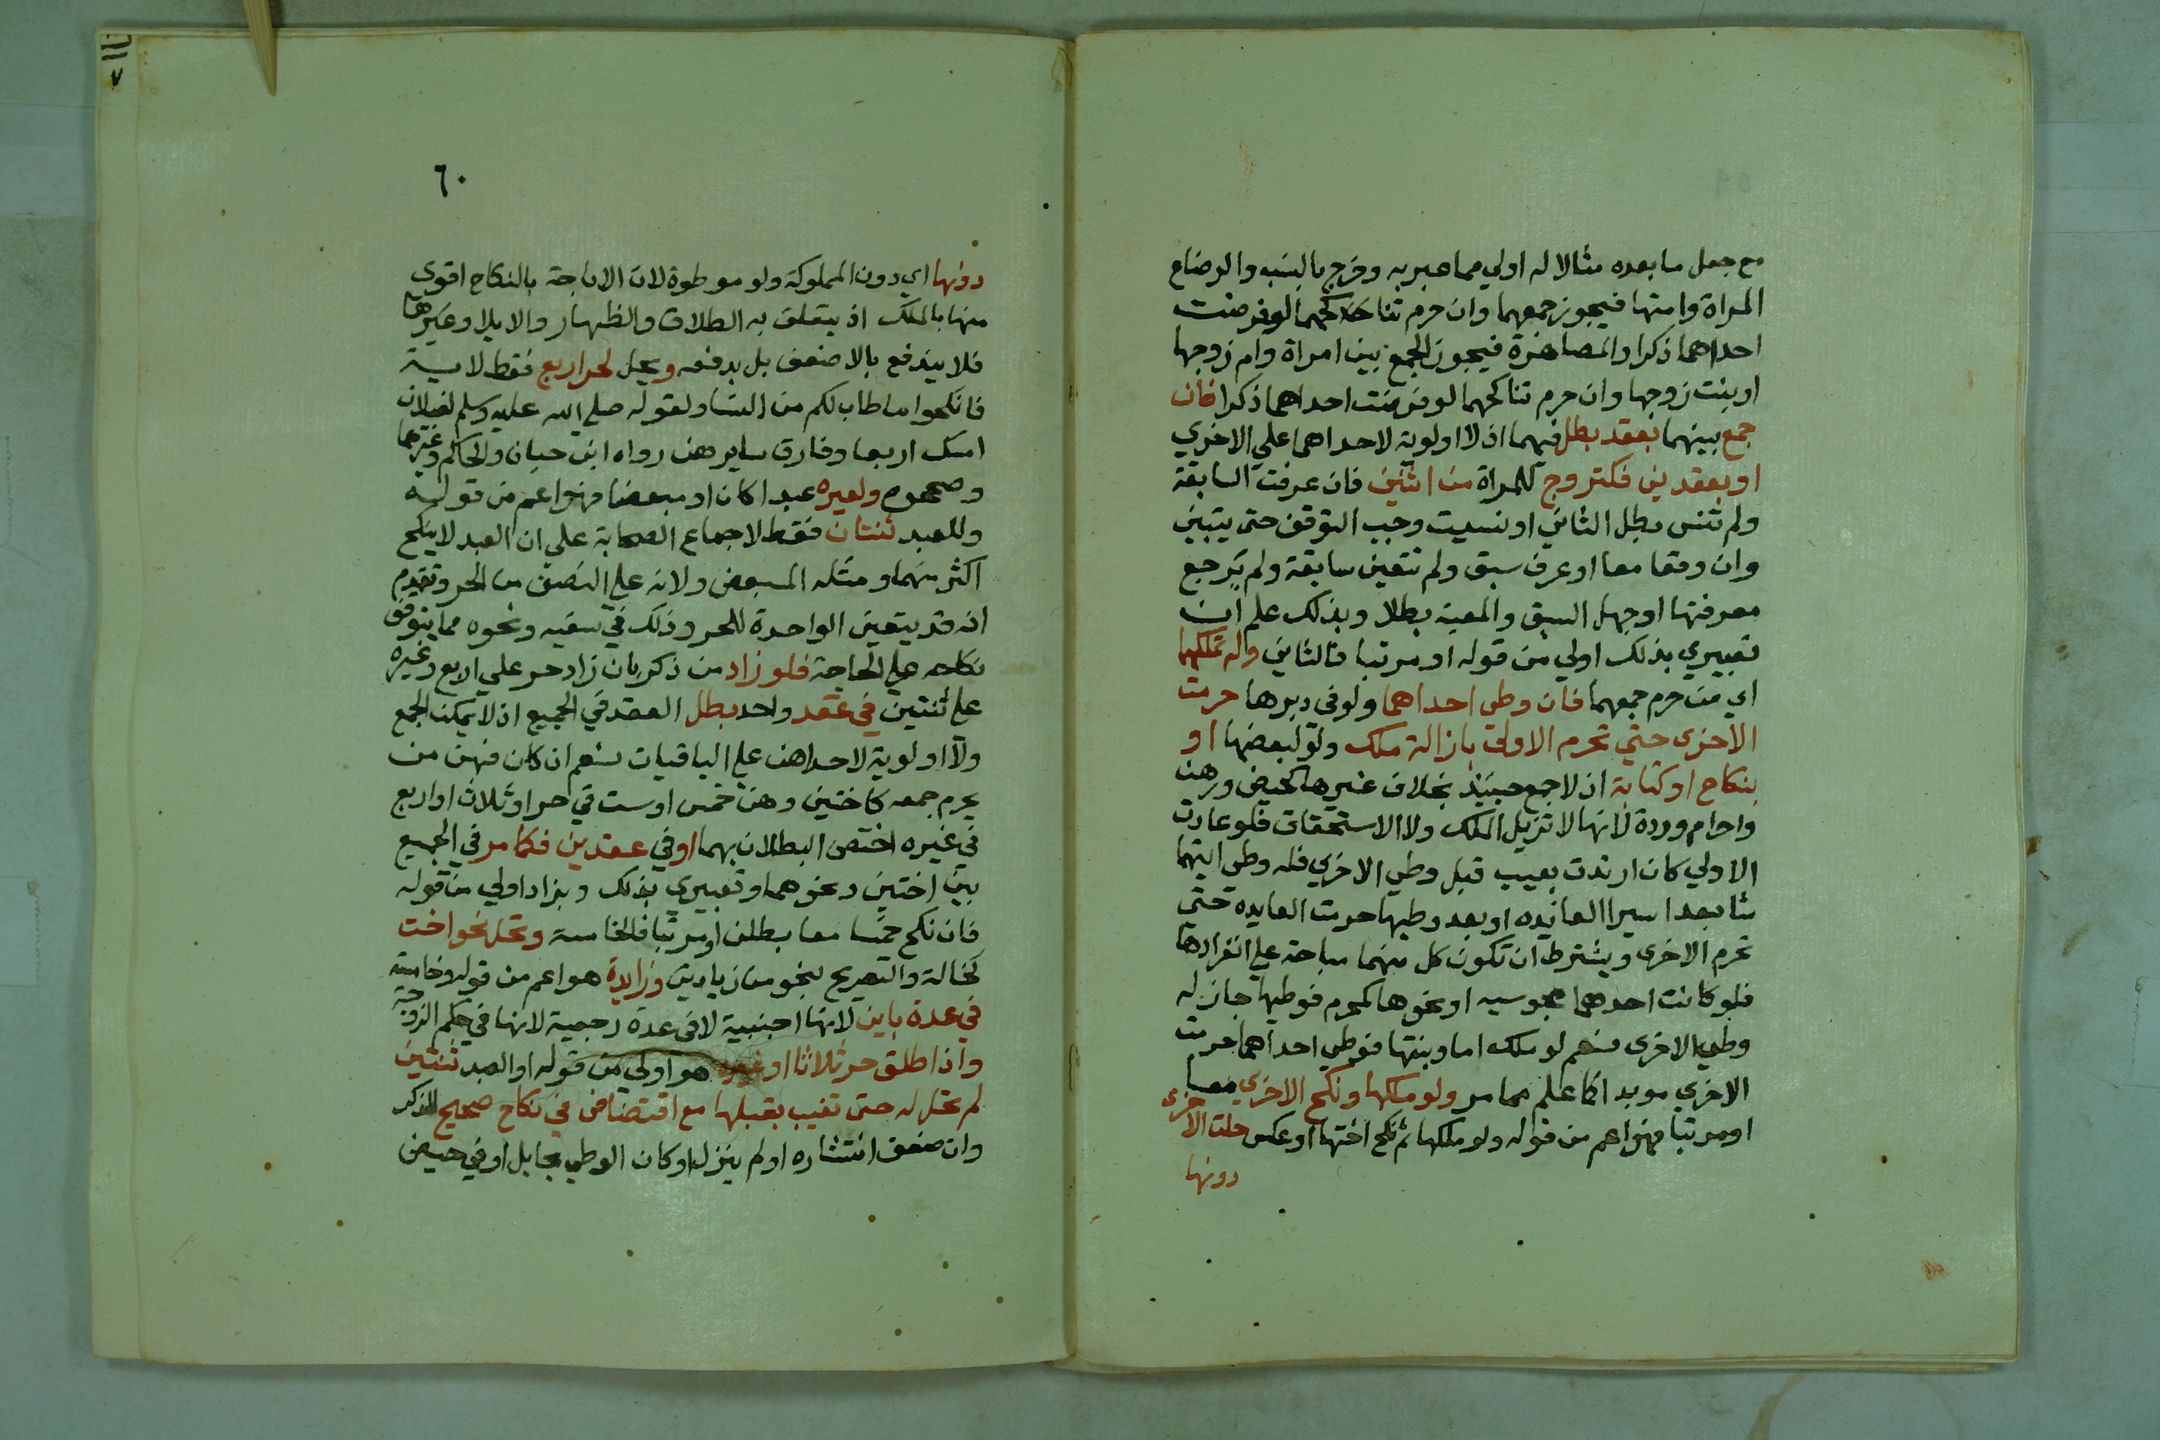 مع جعل ما بعده مثالا له اولي مما عبر به وخرج بالنسب والرضاع
المراة وامتها فيجوز جمعهما وان حرم تناكحهما لو فرضت
احداهما ذكرا والمصاهرة فيجوز الجمع بين امراة وام زوجها
او بنت زوجها وان حرم تناكحهما لو فرضت احداهما ذكرا فان
جمع بينهما بعقد بطل فيهما اذ لا اولوية لاحداهما علي الاخري
او بعقدين فكتزوج للمراة من اثنين فان عرفت السابقة
ولم تنس بطل الثاني او نسيت وجب التوقف حتى يتبين
وان وقعا معا او عرف سبق ولم تتعين سابقة ولم يرج
معرفتها او جهل السبق والمعية بطلا وبذلك علم ان
تعبيري بذلك اولي من قوله او مرتبا فالثاني وله تملكهما
اي من حرم جمعهما فان وطي احداهما ولو في دبرها حرمت
الاخرى حتي تحرم الاولى بازالة ملك ولو لبعضها او
بنكاح او كتابة اذ لا جمع حينئذ بخلاف غيرها كحيض ورهن
واحرام وردة لانها لا تزيل الملك ولا الاستحقاق فلو عادت
الاولي كان ارتدت بعيب قبل وطي الاخري فله وطي ايتهما
شا بعد استبرا العائده او بعد وطيها حرمت العايده حتى
تحرم الاخرى ويشترط ان تكون كل منهما مباحة علي انفرادها
فلو كانت احدهما مجوسيه او نحوها كمحرم فوطيها جاز له
وطي الاخرى نعم لو ملك اما وبنتها فوطي احداهما حرمت
الاخري موبدا كما علم مما مر ولو ملكها ونكح الاخري معا
او مرتبا فهو اعم من قوله ولو ملكها ثم نكح اختها او عكس حلت الاخرى
دونها
٦٠
دونها اي دون المملوكة ولو موطوة لان الاباحة بالنكاح اقوى
منها بالملك اذ يتعلق به الطلاق والظهار والايلا وغيرها
فلا يندفع بالاضعف بل يدفعه ويحل لحر اربع فقط لاية
فانكحوا ما طاب لكم من النسا ولقوله صلي الله عليه وسلم لغيلان
امسك اربعا وفارق سايرهن رواه ابن حبان والحاكم وغيرهما
وصححوه ولغيره عبدا كان او مبعضا فهو اعم من قوله
وللعبد ثنتان فقط لاجماع الصحابة علي ان العبد لا ينكح
اكثر منهما ومثله المبعض ولانه علي النصف من الحر وتقدم
انه قد يتعين الواحدة للحر وذلك في سفيه ونحوه مما يتوقف
نكاحه علي الحاجة فلو زاد من ذكر بان زاد حر علي اربع وغيره
علي ثنتين في عقد واحد بطل العقد في الجميع اذ لا يمكن الجمع
ولا اولوية لاحداهن علي الباقيات نعم ان كان فيهن من
يحرم جمعه كاختين وهن خمس او ست في حر او ثلاث او اربع
في غيره اختص البطلان بهما او في عقدين فكما مر في الجمع
بين اختين ونحوهما وتعبيري بذلك وبزاد اولي من قوله
فان نكح خمسا معا بطلن او مرتبا فالخامسة وتحل نحو اخت
كخالة والتصريح بنحو من زيادتي وزايدة هو اعم من قوله وخامسة
في عدة باين لانها اجنبية لا في عدة رجعية لانها في حكم الزوجة
واذا طلق حر ثلاثا او غيره هو اولي من قوله او العبد ثنتين
لم تحل له حتى تغيب بقبلها مع افتضاض في نكاح صحيح للذكر
وان ضعف انتشاره او لم ينزل او كان الوطي بحايل او في حيض